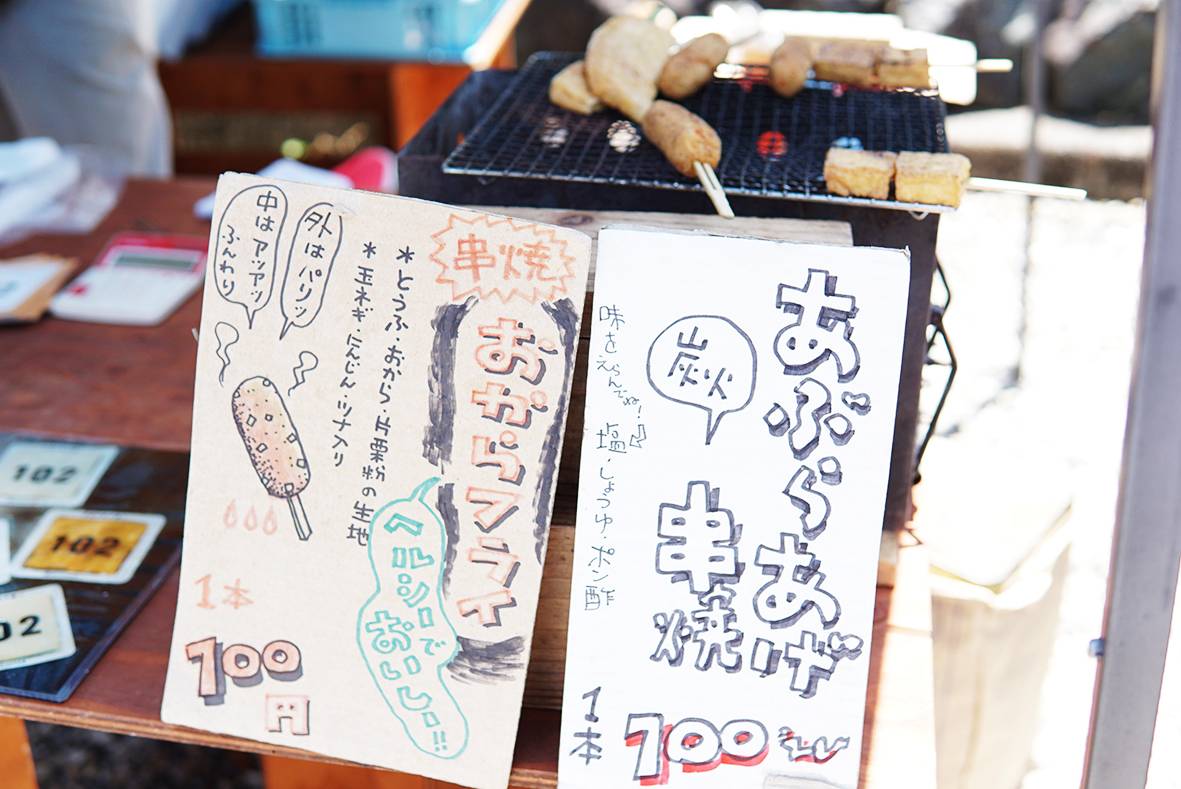 串焼
おからフライ
*とうふ・おから・片栗粉の生地
*玉ネギ・にんじん・ツナ入り
外はパリッ
中はアッアッ
ふんわり
ヘルシーで
おいしー!!
1本
100
円
あぶらあげ
炭火
串焼
味をえらんでね!
塩・しょうゆ・ポン酢
1本
100
102
102
02